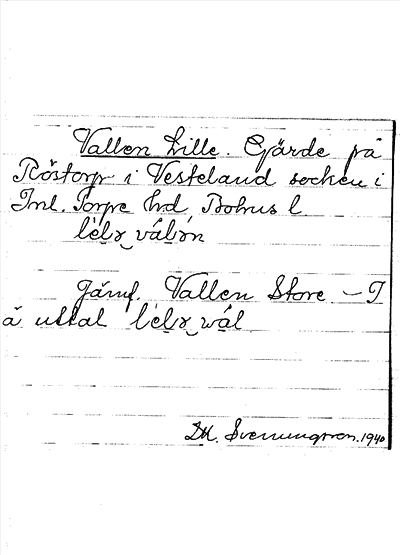 Vallen Lille. Gärde på
Röstorp i Vesteland socken i
Inl. Torpe hrd, Bohus l

Jämf. Vallen Store – I
å uttal
Svenungsson. 1940